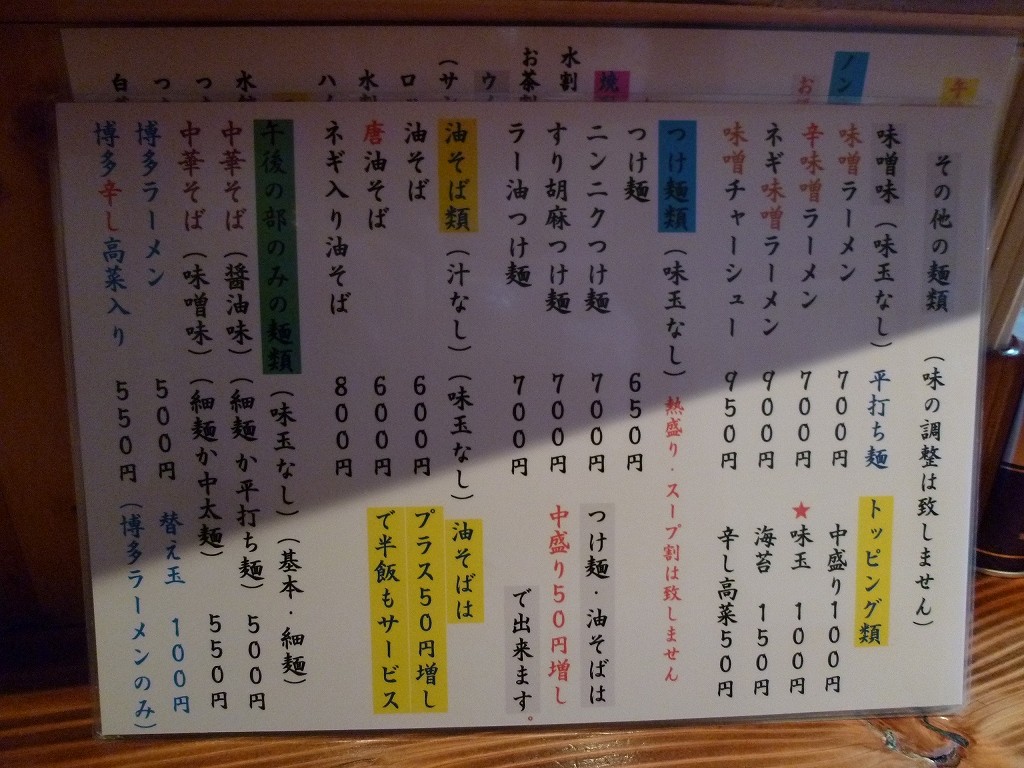 その他の麺類 (味の調整は致しません)
味噌味 (味玉なし) 平打ち麺
味噌ラーメン 700円
辛味噌ラーメン 700円
ネギ味噌ラーメン 900円
味噌チャーシュー 950円
トッピング類
中盛り100円
★味玉 100円
海苔 150円
辛し高菜50円
つけ麺類 (味玉なし) 熱盛り・スープ割は致しません
つけ麺 650円
ニンニクつけ麺 700円
すり胡麻つけ麺 700円
ラー油つけ麺 700円
つけ麺・油そばは
中盛り50円増し
で出来ます
油そば類 (汁なし) (味玉なし)
油そば 600円
唐油そば 600円
ネギ入り油そば 800円
油そばは
プラス50円増し
で半飯もサービス
午後の部のみの麺類 (味玉なし) (基本・細麺)
中華そば (醤油味) (細麺か平打ち麺) 500円
中華そば (味噌味) (細麺か中太麺) 550円
博多ラーメン 500円 替え玉 100円
博多辛し高菜入り 550円 (博多ラーメンのみ)
水割